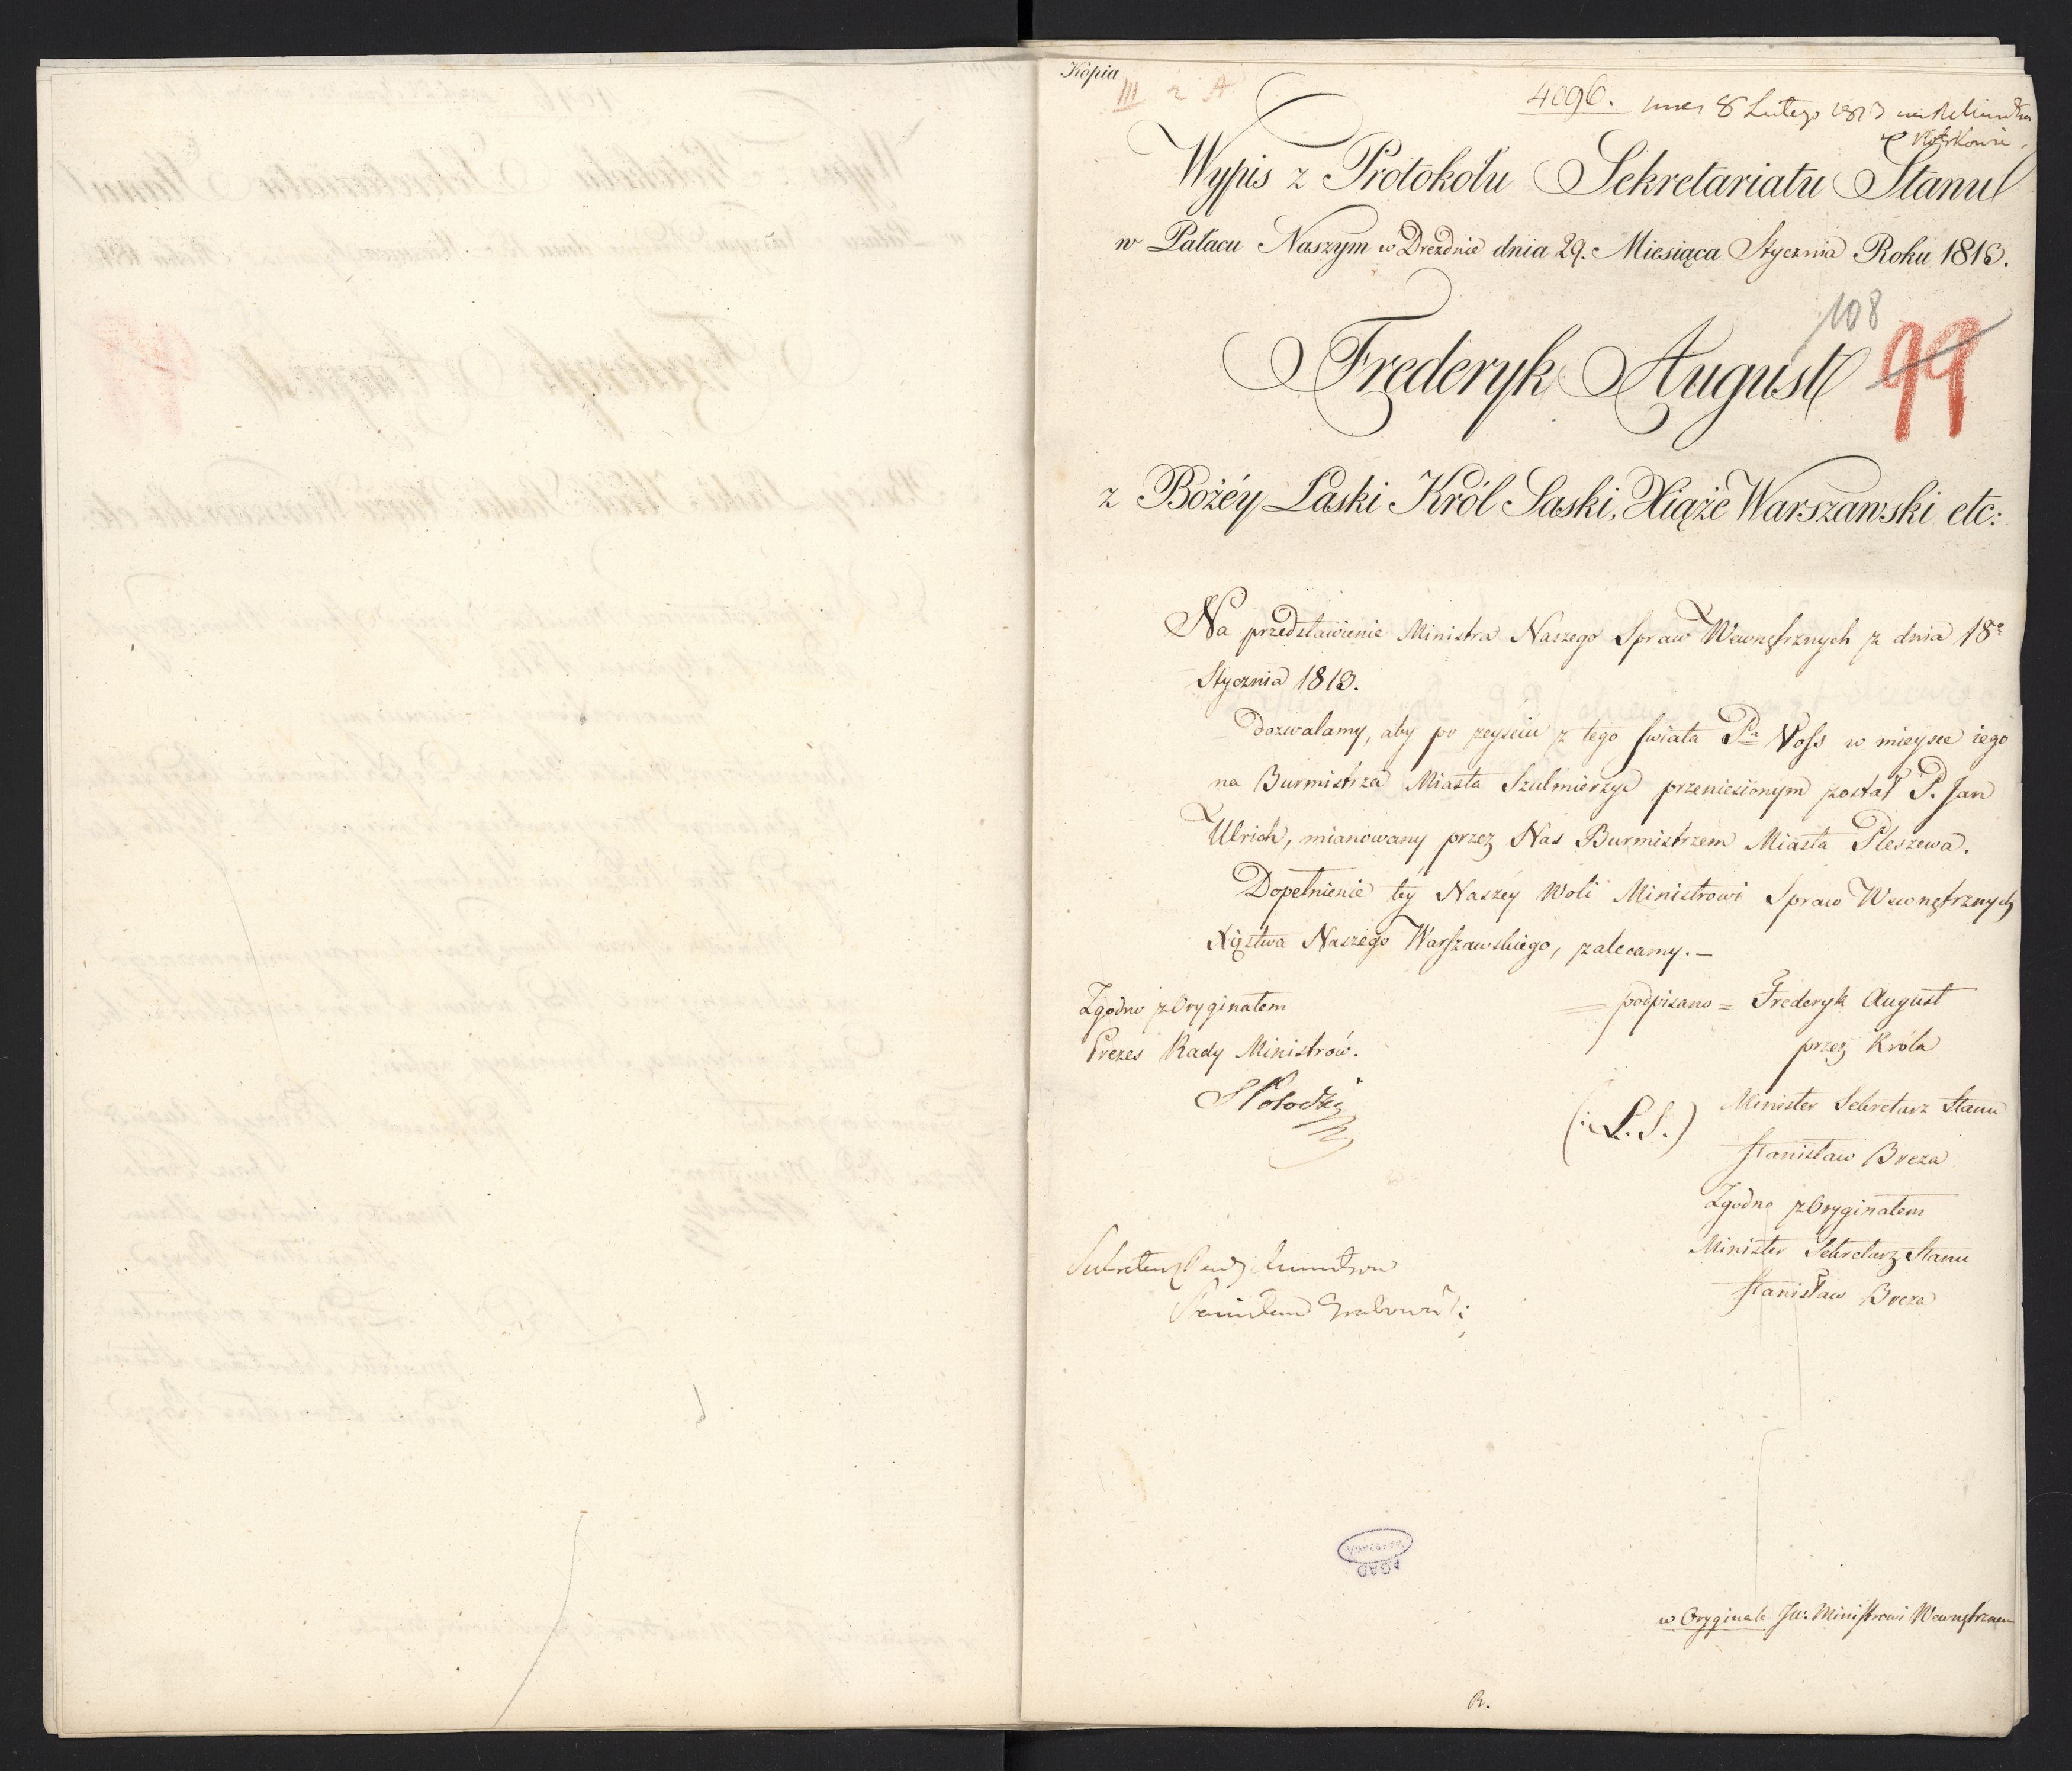 Kopia
III 2 A
4096. 8 Lutego 1813
Wypis z Protokołu Sekretariatu Stanu
w Pałacu Naszym w Dreznie dnia 29. Miesiąca Stycznia Roku 1813.
108
99
Frederyk August
z Bożéy Łaski Król Saski, Xiąże Warszawski etc:
Na przedstawienie Ministra Naszego Spraw Wewnętrznych z dnia 18º
Stycznia 1813.
Dozwalamy, aby po zeyściu z tego świata Pa Voss w mieysce iego
na Burmistrza Miasta Szulmierzyc przeniesionym został P. Jan
Ulrich, mianowany przez Nas Burmistrzem Miasta Pleszewa.
Dopełnienie tey Naszéy Woli Ministrowi Spraw Wewnętrznych
Xięstwa Naszego Warszawskiego, zalecamy. —
Zgodno z Oryginałem
= podpisano = Frederyk August
Prezes Rady Ministrów.
przez Króla
S Potocki
(: L. S.)
Minister Sekretarz Stanu
Stanisław Breza
Zgodno z Oryginałem
Minister Sekretarz Stanu
Stanisław Breza
Sekretarz Rady Ministrow
Stanisław Grabowski
AGAD
WARSZAWA
w Oryginale JW: Ministrowi Wewnętrznemu
R.